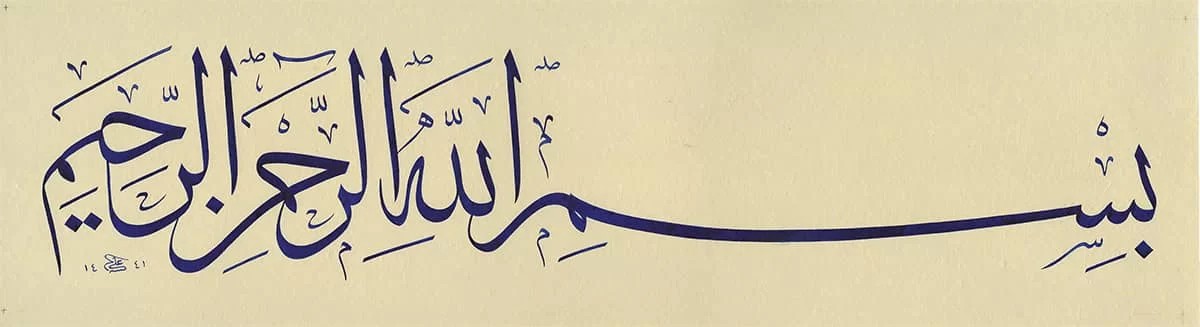 بِسْمِ اللَّهِ الرَّحْمَٰنِ الرَّحِيمِ
١٤ ٤١